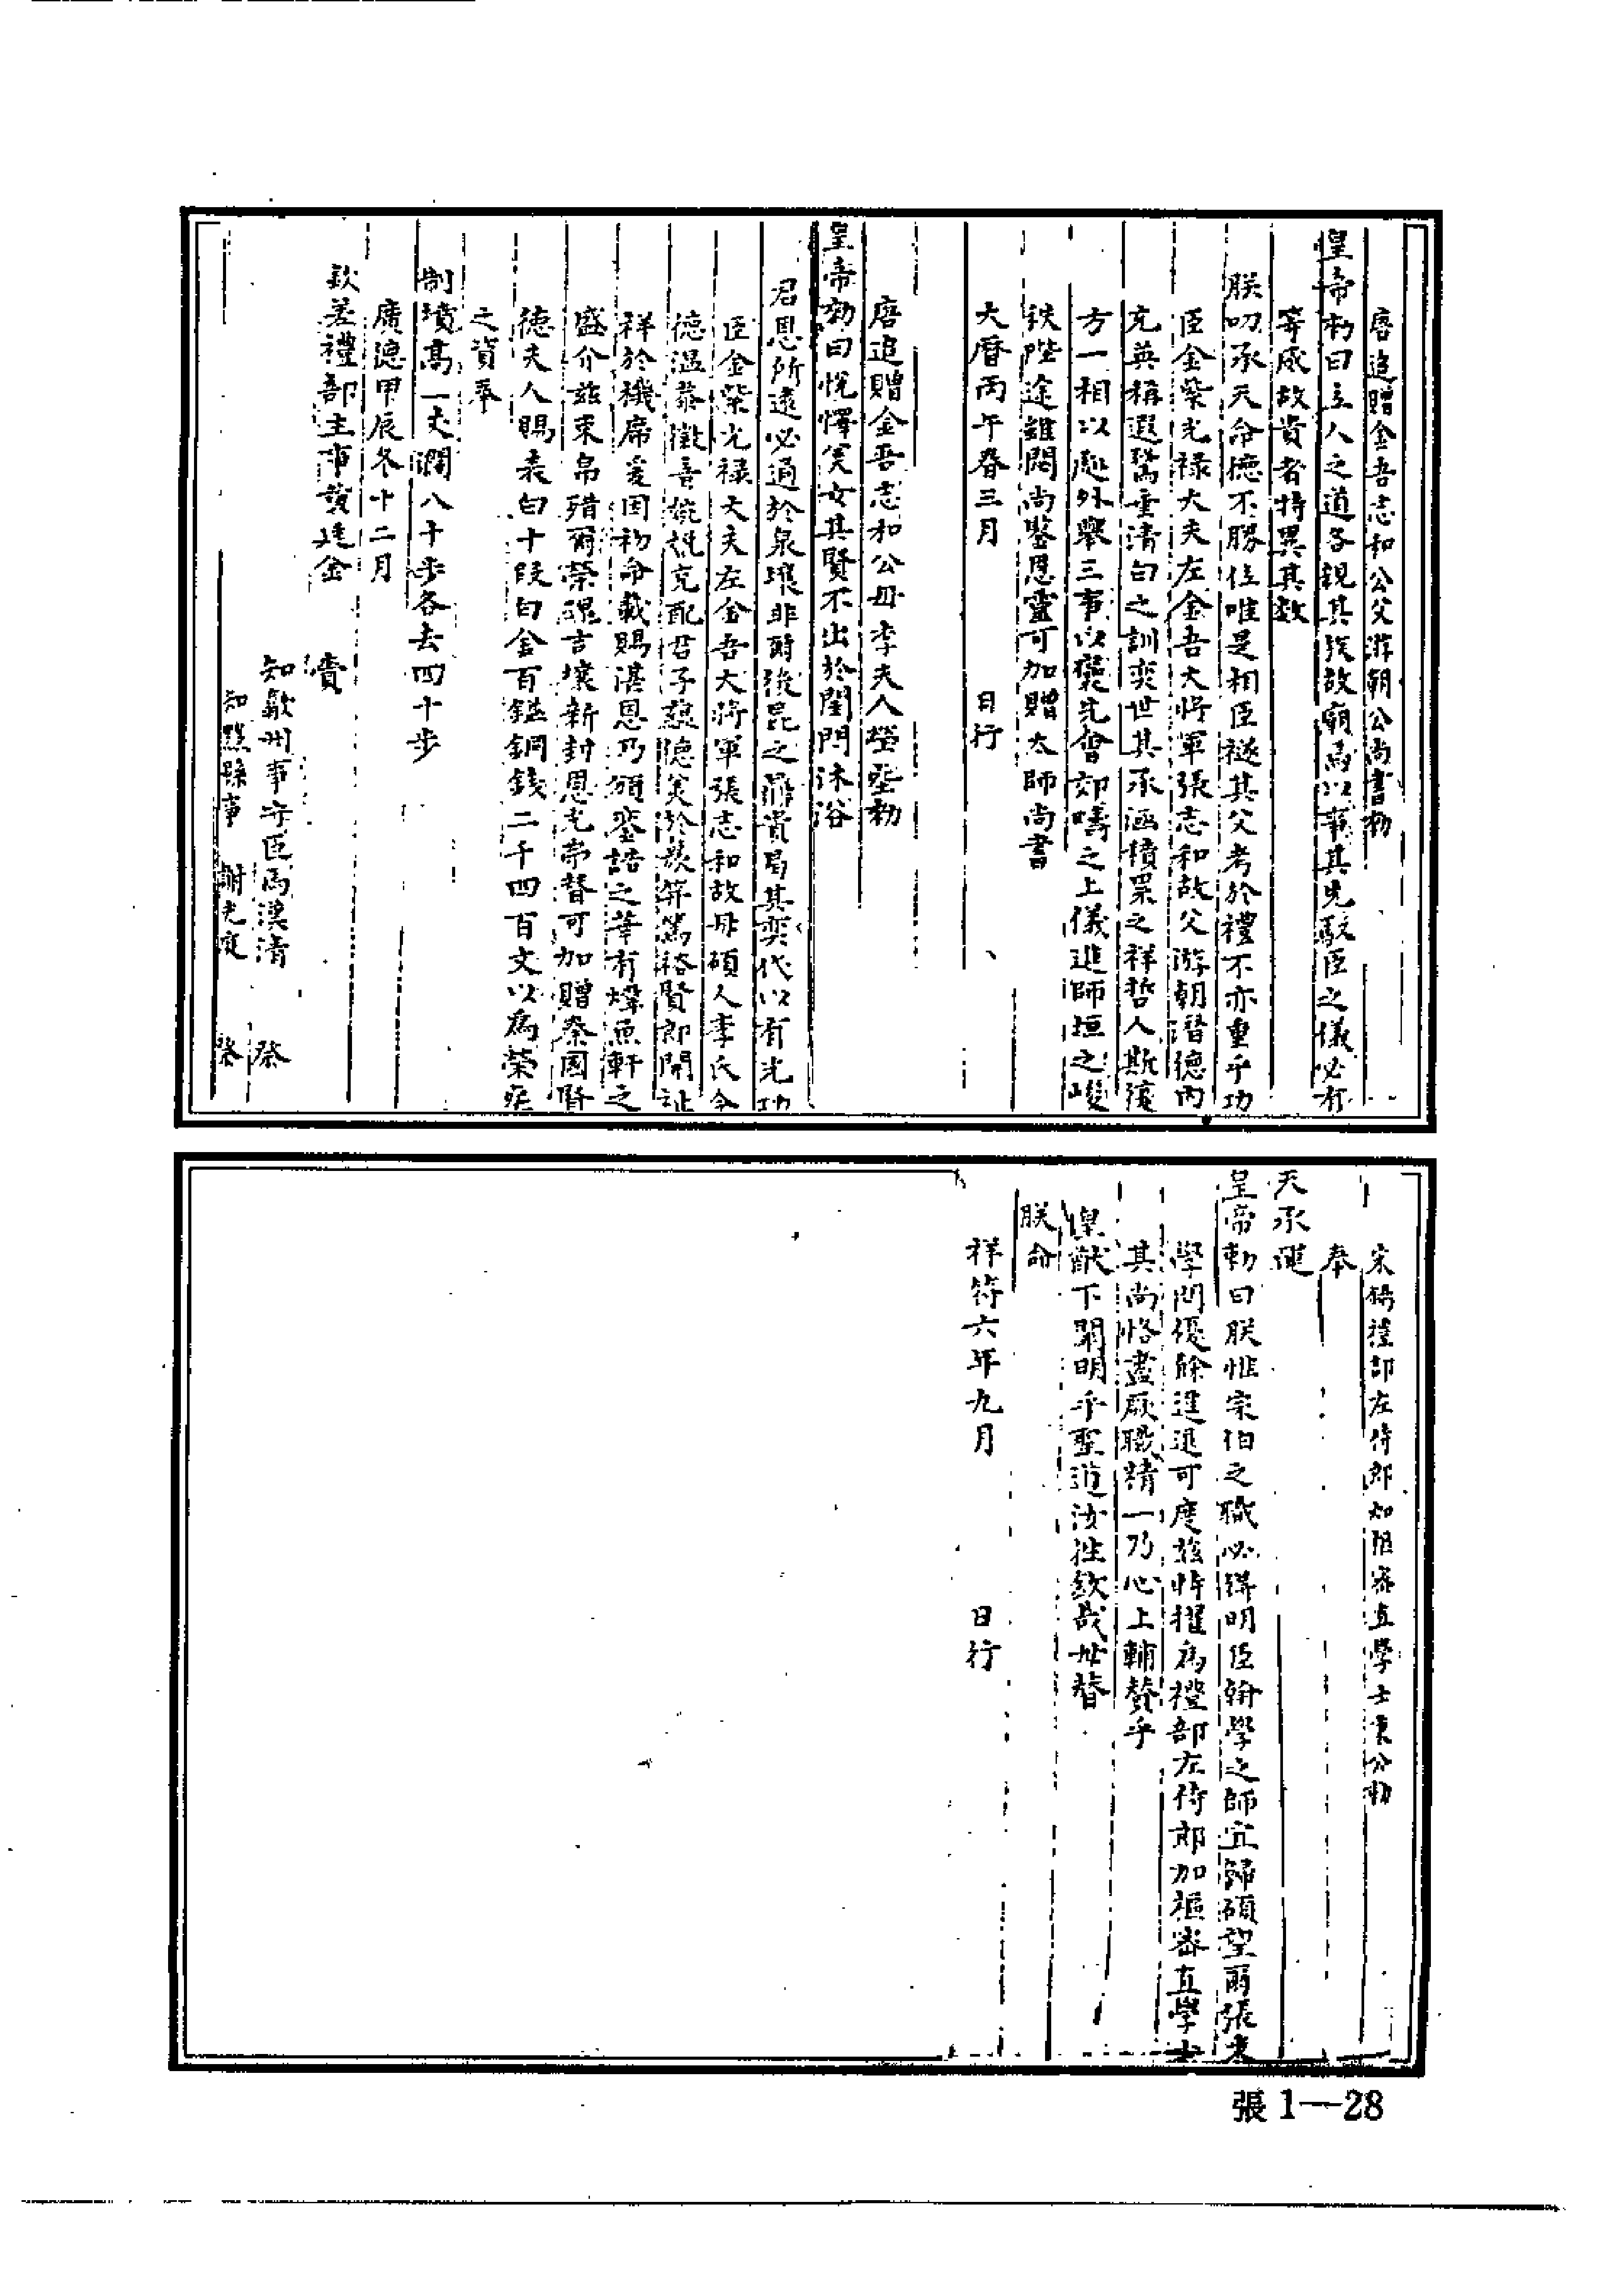 唐追贈金吾志和公父游朝公尚書勅
皇帝勅曰立人之道各親其族故廟焉以事其先馭臣之儀必有
等威故貴者特異其数
朕叨承天命德不勝任唯是相臣遂其父考於禮不亦重乎功
臣金紫光禄大夫左金吾大将軍張志和故父游朝潛德內
充英稱遐騖垂清白之訓奕世其承涵積累之祥哲人斯後
方一相以處外舉三事以襃先會郊疇之上儀進師垣之峻
秩陛途雖閟尚鑒恩靈可加贈太師尚書
大曆丙午春三月 日行
唐追贈金吾志和公母李夫人塋塟勅
皇帝勅曰悅懌关女其賢不出於閨門沐浴
君恩所遠必通於泉壤非爾後昆之鼎貴曷其奕代以有光功
臣金紫光禄大夫左金吾大將軍張志和故母碩人李氏令
德温恭徽音婉娩克配君子懿德关於族笄篤裕賢郎開祉
祥於禨席爰因初命載賜湛恩乃頒鸞誥之華有煒魚軒之
盛介茲束帛殖爾榮魂吉壤新封恩光帝督可加贈秦国賢
德夫人賜表白十段白金百鎰銅錢二千四百文以為榮葬
之資奉
制墳高一丈濶八十步各去四十步
廣德甲辰冬十二月
欽差禮部主事黄廷金
賫
知歙州事守臣馬漢清 祭
知黟縣事 謝光庭 祭
宋錫禮部左侍郎知樞密直學士秉公勅
奉
天承運
皇帝勅曰朕惟宗伯之職必得明臣翰學之師宜歸碩望爾張秉
學問優餘進退可度茲特擢為禮部左侍郎加樞密直學士
其尚恪盡厥職精一乃心上輔贊乎
皇猷下闡明乎聖道汝往欽哉毋替
朕命
祥符六年九月 日行
張1—28